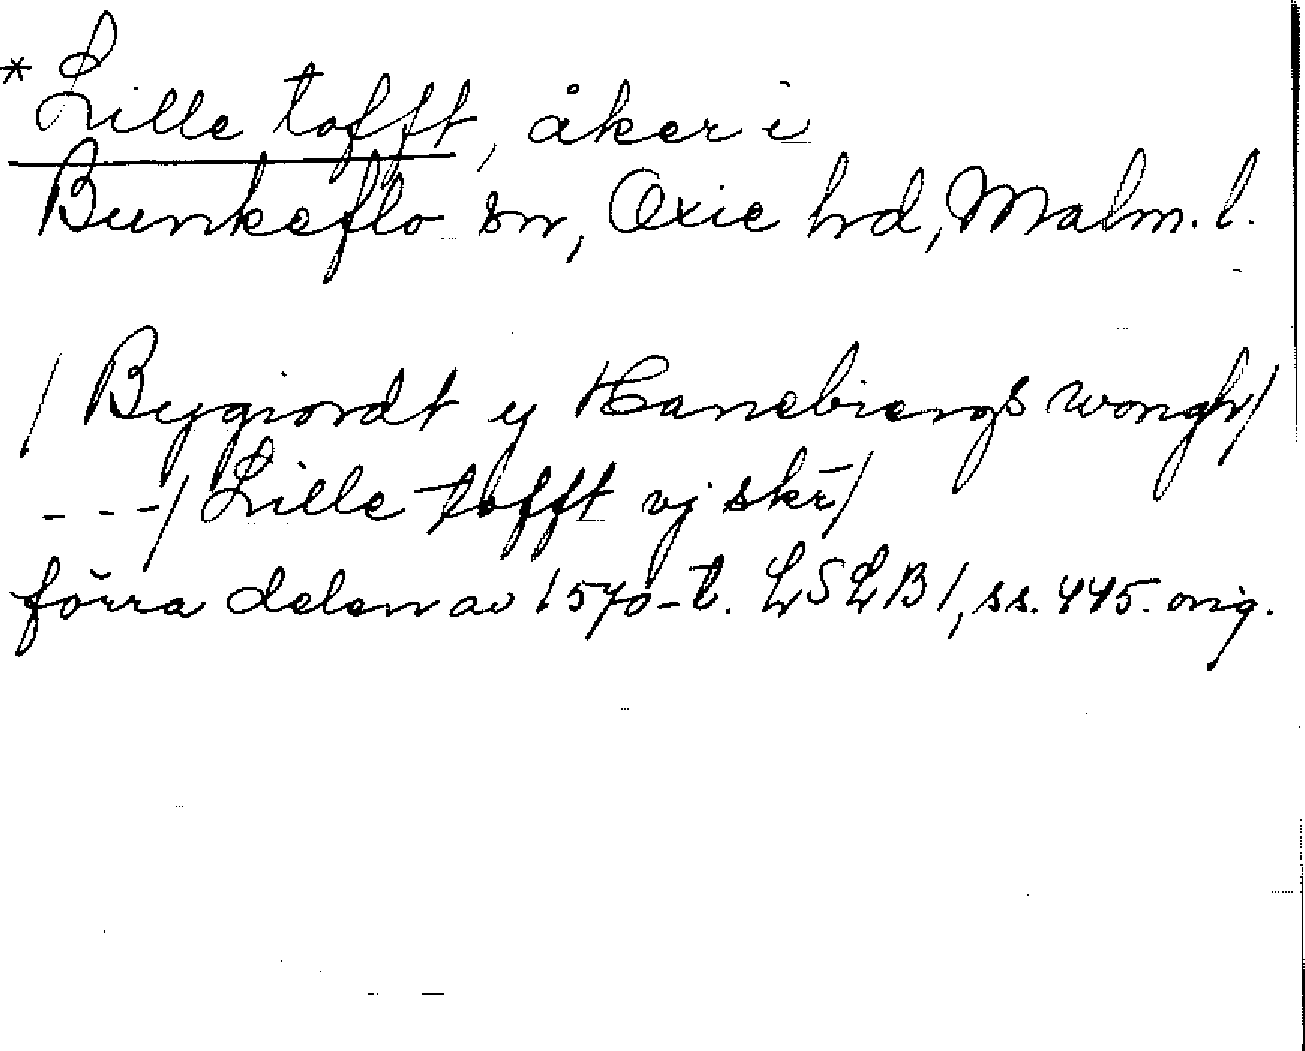 * Lille tofft, åker i
Bunkeflo sn, Oxie hd, Malm. l.
/ Bygiordt y Hanebiergs wongh/
- - -/ Lille tofft vj skr̄/
förra delen av 1570-t. LSLB 1, ss. 445. orig.